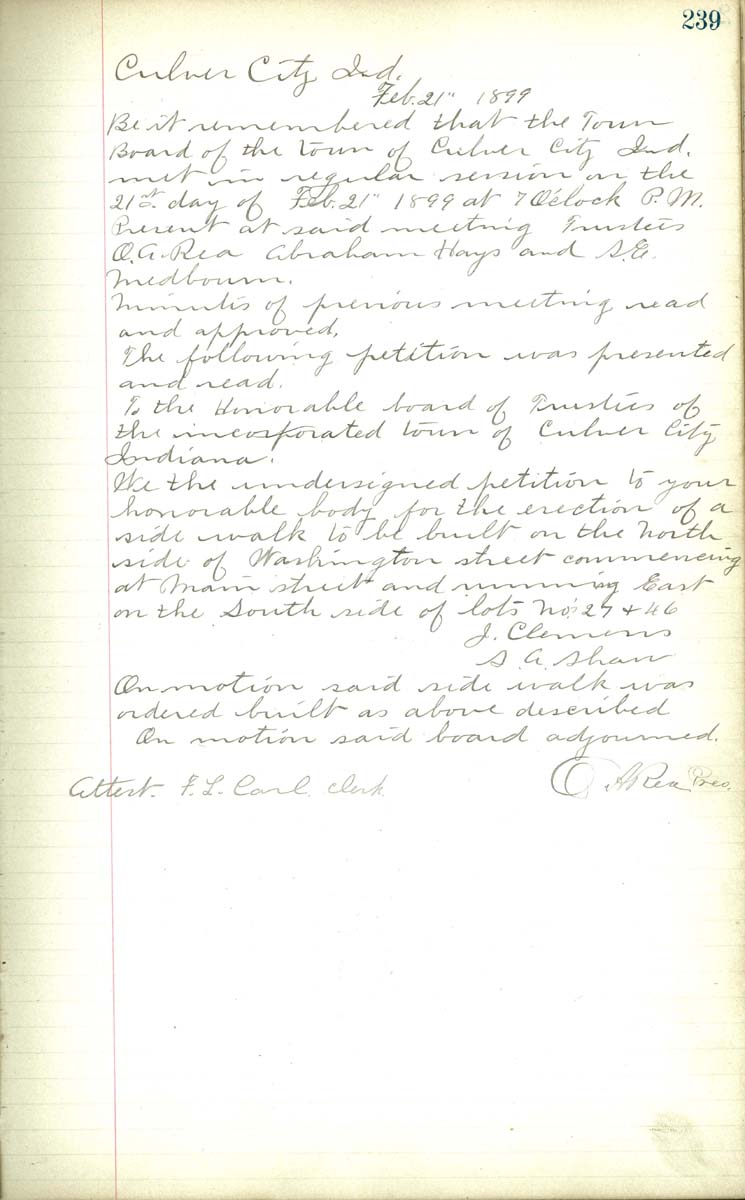 239
Culver City Ind.
Feb. 21" 1899
Be it remembered that the Town
Board of the town of Culver City Ind.
met in regular session on the
21st day of Feb. 21" 1899 at 7 O'clock P.M.
Present at said meeting Trustees
O.A. Rea Abraham Hays and S.E.
Medbourn.
Minutes of previous meeting read
and approved.
The following petition was presented
and read.
To the Honorable board of Trustees of
the incorporated town of Culver City
Indiana.
We the undersigned petition to your
honorable body for the erection of a
side walk to be built on the North
side of Washington street commencing
at Main street and running East
on the South side of lots No's 27 + 46
J. Clemens
S. A. Shaw
On motion said side walk was
ordered built as above described
On motion said board adjourned.
Attest. F. L. Carl. clerk O A Rea Pres.